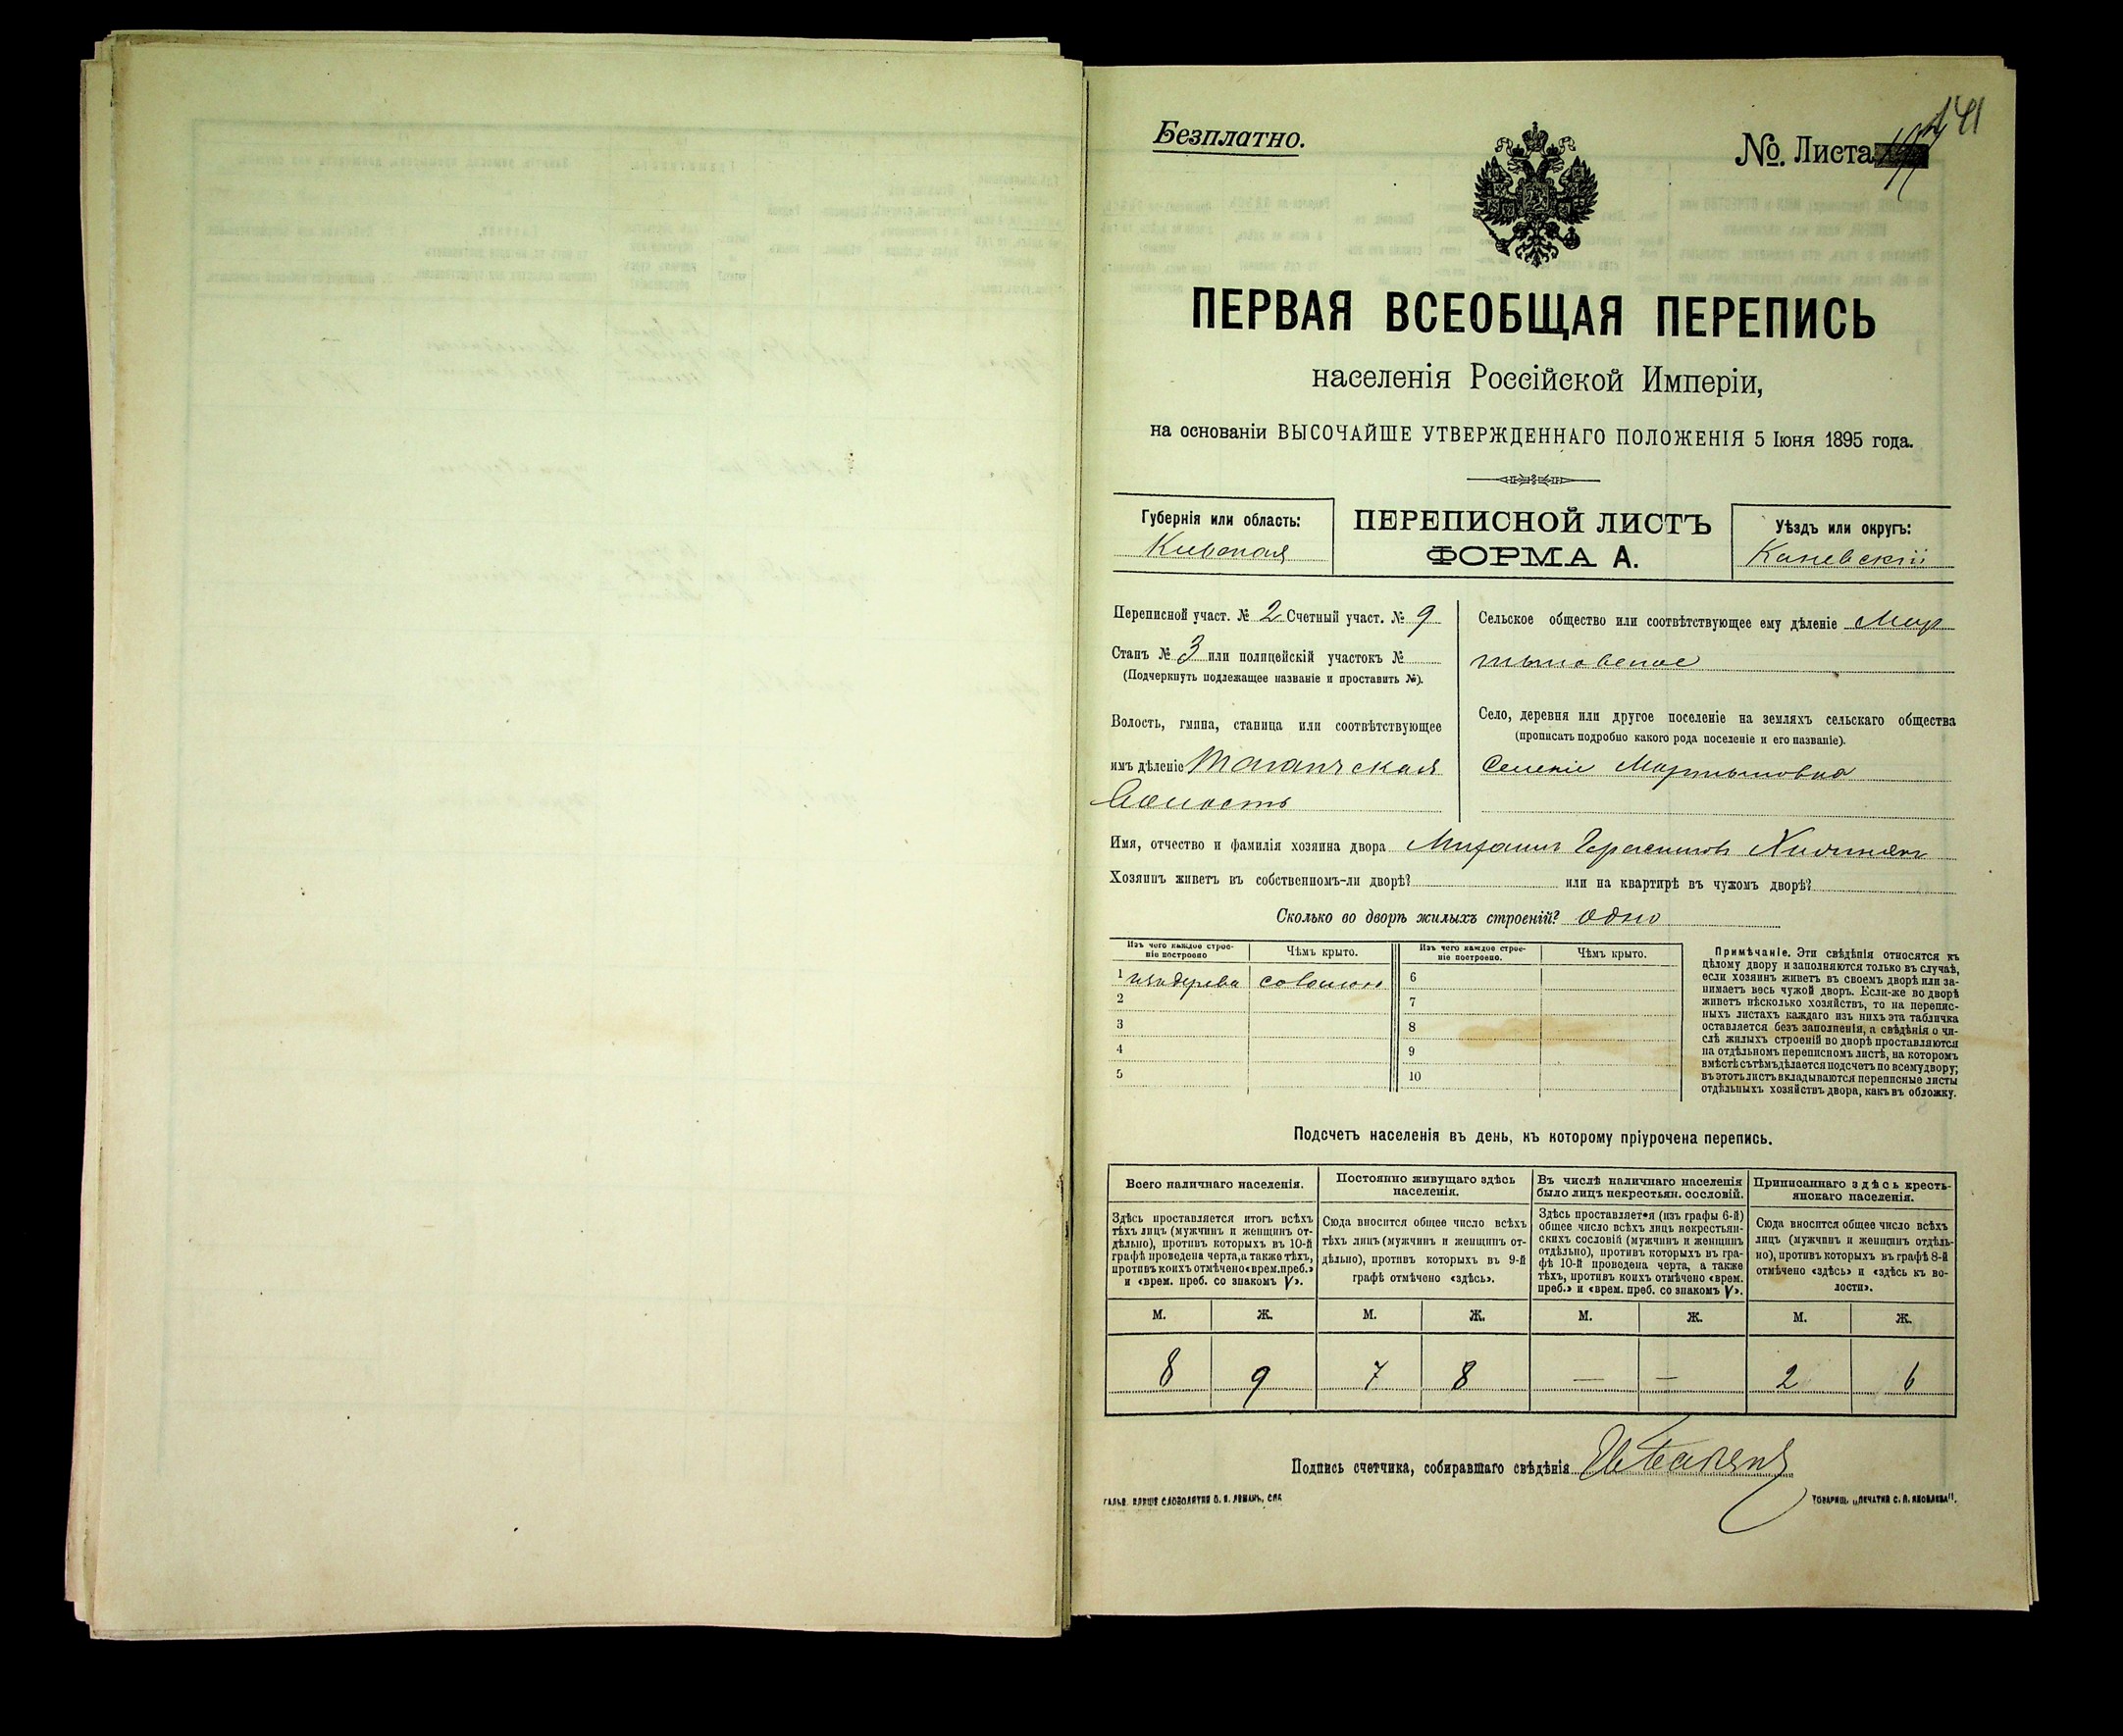 Безплатно.
№. Листа
141
ПЕРВАЯ ВСЕОБЩАЯ ПЕРЕПИСЬ
населенія Россійской Имперіи,
на основаніи ВЫСОЧАЙШЕ УТВЕРЖДЕННАГО ПОЛОЖЕНІЯ 5 Іюня 1895 года.
Губернія или область:
Киевская
ПЕРЕПИСНОЙ ЛИСТЪ
ФОРМА А.
Уѣздъ или округъ:
Каневскій
Переписной участ. № 2 Счетный участ. № 9
Станъ № 3 или полицейскій участокъ №
(Подчеркнуть подлежащее названіе и проставить №).
Волость, гмина, станица или соотвѣтствующее
имъ дѣленіе Таганчская
Волость
Сельское общество или соотвѣтствующее ему дѣленіе Мар
тыновское
Село, деревня или другое поселеніе на земляхъ сельскаго общества
(прописать подробно какого рода поселеніе и его названіе).
Селеніе Мартыновка
Имя, отчество и фамилія хозяина двора Михаилъ Герасимовъ
Хозяинъ живетъ въ собственномъ-ли дворѣ? или на квартирѣ въ чужомъ дворѣ?
Сколько во дворѣ жилыхъ строеній? одно
Изъ чего каждое строе-
ніе построено
Чѣмъ крыто.
Изъ чего каждое строе-
ніе построено.
Чѣмъ крыто.
1 изъ дерева соломою
2
3
4
5
6
7
8
9
10
Примѣчаніе. Эти свѣдѣнія относятся къ
цѣлому двору и заполняются только въ случаѣ,
если хозяинъ живетъ въ своемъ дворѣ или за-
нимаетъ весь чужой дворъ. Если-же во дворѣ
живетъ нѣсколько хозяйствъ, то на перепис-
ныхъ листахъ каждаго изъ нихъ эта табличка
оставляется безъ заполненія, а свѣдѣнія о чи-
слѣ жилыхъ строеній во дворѣ проставляются
на отдѣльномъ переписномъ листѣ, на которомъ
вмѣстѣ съ тѣмъ дѣлается подсчетъ по всему двору;
въ этотъ листъ вкладываются переписные листы
отдѣльныхъ хозяйствъ двора, какъ въ обложку.
Подсчетъ населенія въ день, къ которому пріурочена перепись.
Всего наличнаго населенія.
Здѣсь проставляется итогъ всѣхъ
тѣхъ лицъ (мужчинъ и женщинъ от-
дѣльно), противъ которыхъ въ 10-й
графѣ проведена черта, а также тѣхъ,
противъ коихъ отмѣчено «врем. преб.»
и «врем. преб. со знакомъ V».
Постоянно живущаго здѣсь
населенія.
Сюда вносится общее число всѣхъ
тѣхъ лицъ (мужчинъ и женщинъ от-
дѣльно), противъ которыхъ въ 9-й
графѣ отмѣчено «здѣсь».
Въ числѣ наличнаго населенія
было лицъ некрестьян. сословій.
Здѣсь проставляется (изъ графы 6-й)
общее число всѣхъ лицъ некрестьян-
скихъ сословій (мужчинъ и женщинъ
отдѣльно), противъ которыхъ въ гра-
фѣ 10-й проведена черта, а также
тѣхъ, противъ коихъ отмѣчено «врем.
преб.» и «врем. преб. со знакомъ V».
Приписаннаго здѣсь кресть-
янскаго населенія.
Сюда вносится общее число всѣхъ
лицъ (мужчинъ и женщинъ отдѣль-
но), противъ которыхъ въ графѣ 8-й
отмѣчено «здѣсь» и «здѣсь къ во-
лости».
М. Ж. М. Ж. М. Ж. М. Ж.
8 9 7 8 — — 2 6
Подпись счетчика, собиравшаго свѣдѣнія
ГАЛЬВ. КЛИШЕ СЛОВОЛИТНИ О. И. ЛЕМАНЪ, СПБ.
ТОВАРИЩ. „ПЕЧАТНЯ С. П. ЯКОВЛЕВА".